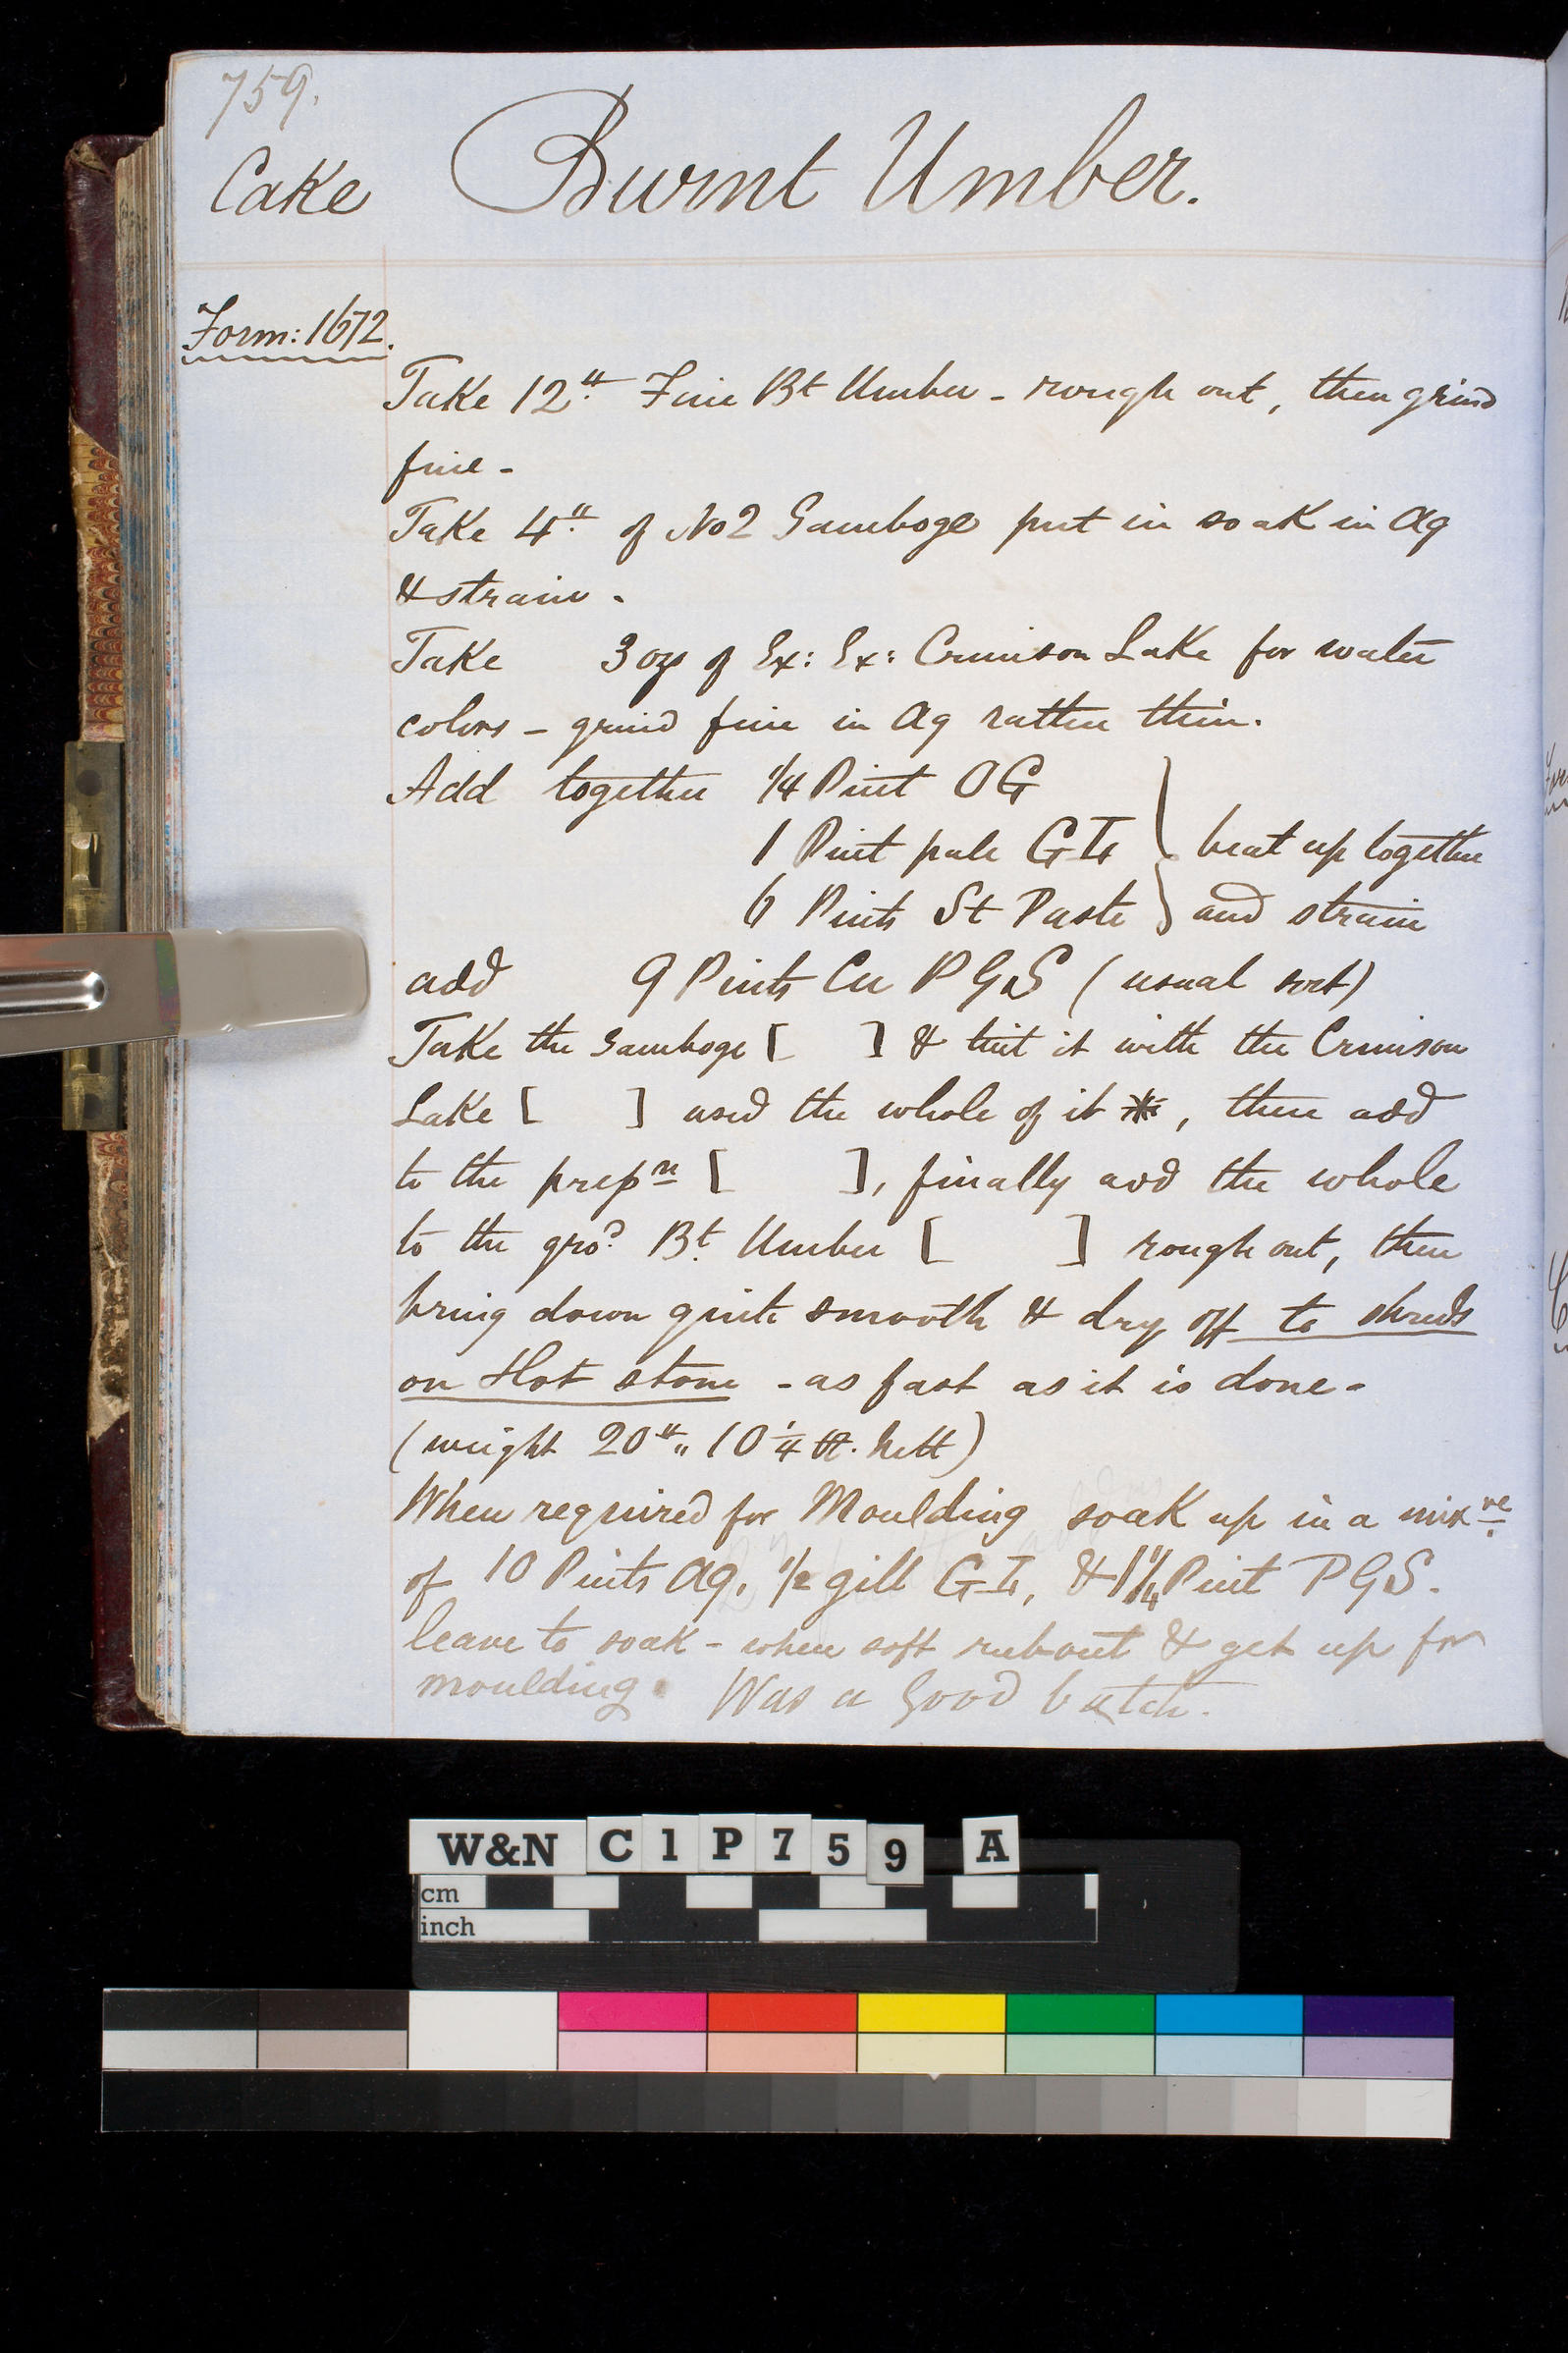 759.
Cake Burnt Umber.
Form: 1672.
Take 12 ℔ Fine Bt Umber - rough out, then grind
fine -
Take 4 ℔ of No2 Gamboge put in soak in Aq
& strain -
Take 3 ozs of Ex: Ex: Crimson Lake for water
colors - grind fine in Aq rather thin.
Add together 1/4 Pint OG
1 Pint pale G I4 } beat up together
6 Pints St Paste } and strain
add 9 Pints Cu P G S (usual sort)
Take the Gamboge [ ] & tint it with the Crimson
Lake [ ] used the whole of it *, then add
to the prepre [ ], finally add the whole
to the grod. Bt. Umber [ ] rough out, then
bring down quite smooth & dry off to shreds
on Hot stone - as fast as it is done -
(weight 20 ℔ " 10 1/4 ℔. Nett)
When required for Moulding soak up in a mixre
of 10 Pints Aq, 1/2 gill G I4, & 1 1/4 Pint P G S.
leave to soak - when soft rub out & get up for
moulding. Was a Good batch.
W&N C1P759 A
cm
inch